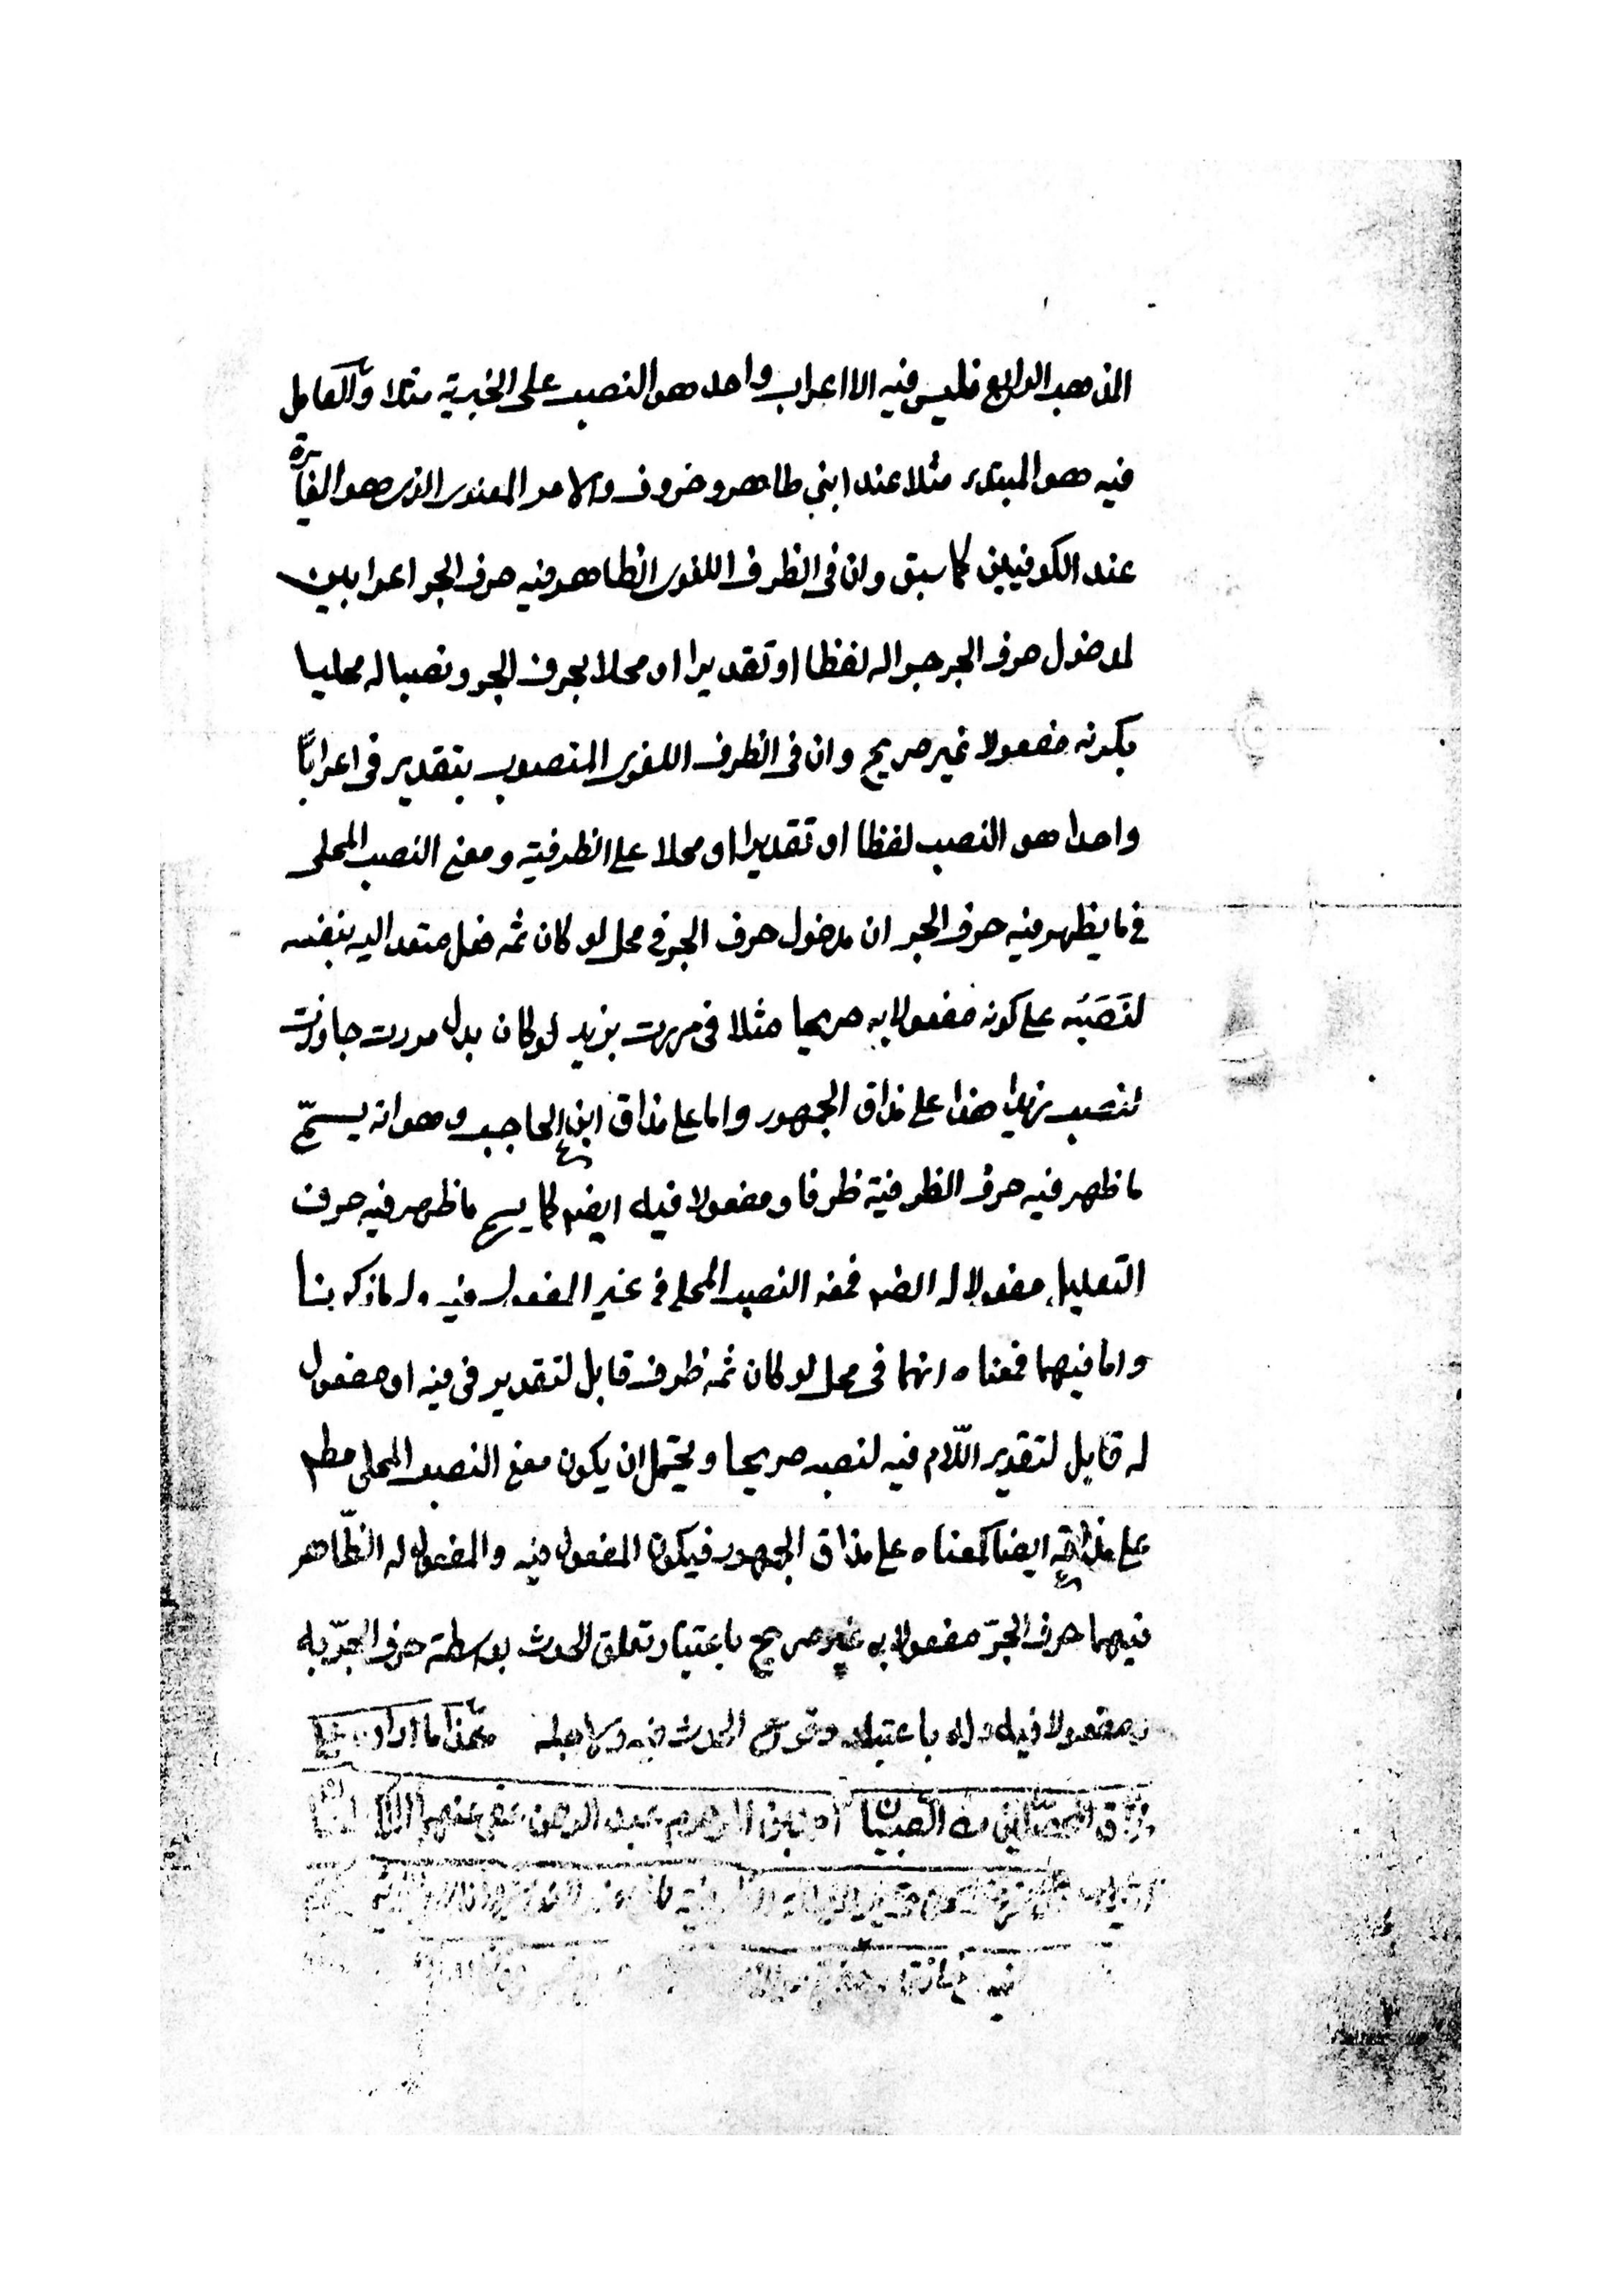 المذهب الرابع فليس فيه الا اعراب واحد هو النصب على الخبرية مثلا والعامل
فيه هو المبتدء مثلا عند ابني طاهر وخروف والامر المعنوى الذى هو المغايرة
عند الكوفيين كما سبق وان فى الظرف اللغوى الظاهر فيه حرف الجر اعرابين
لمدخول حرف الجر جرا له لفظا او تقديرا او محلا بحرف الجر ونصبا له محليا
بكونه مفعولا غير صريح وان فى الظرف اللغوى المنصوب بتقدير فى اعرابًا
واحدا هو النصب لفظا او تقديرا او محلا على الظرفية ومعنى النصب المحلى
فى ما يظهر فيه حرف الجر ان مدخول حرف الجر فى محل لو كان ثمه فعل متعد اليه بنفسه
لنَصَبَه على كونه مفعولا به صريحا مثلا فى مررت بزيد لو كان بدل مررت جاوزت
لنصب زيدا هذا على مذاق الجمهور واما على مذاق ابن الحاجب وهو انه يسمّى
ما ظهر فيه حرف الظرفية ظرفا ومفعولا فيه ايضم كما يسمى ما ظهر فيه حرف
التعليل مفعولا له ايضم فمعنى النصب المحلى فى غير المفعول فيه وله ما ذكرنا
واما فيهما فمعناه انهما فى محل لو كان ثمه ظرف قابل لتقدير فى فيه او مفعول
له قابل لتقدير اللّام فيه لنصبه صريحا ويحتمل ان يكون معنى النصب المحلى مطم
على مذاقه ايضا كمعناه على مذاق الجمهور فيكون المفعول فيه والمفعول له الظّاهر
فيهما حرف الجرّ مفعولا به غير صريح باعتبار تعلق الحدث بواسطة حرف الجرّ به
ومفعولا فيه وله باعتبار وقوع الحدث فيه ولاجله هذا ما اراد
الصبيان عبد الرحمن عفى عنهم